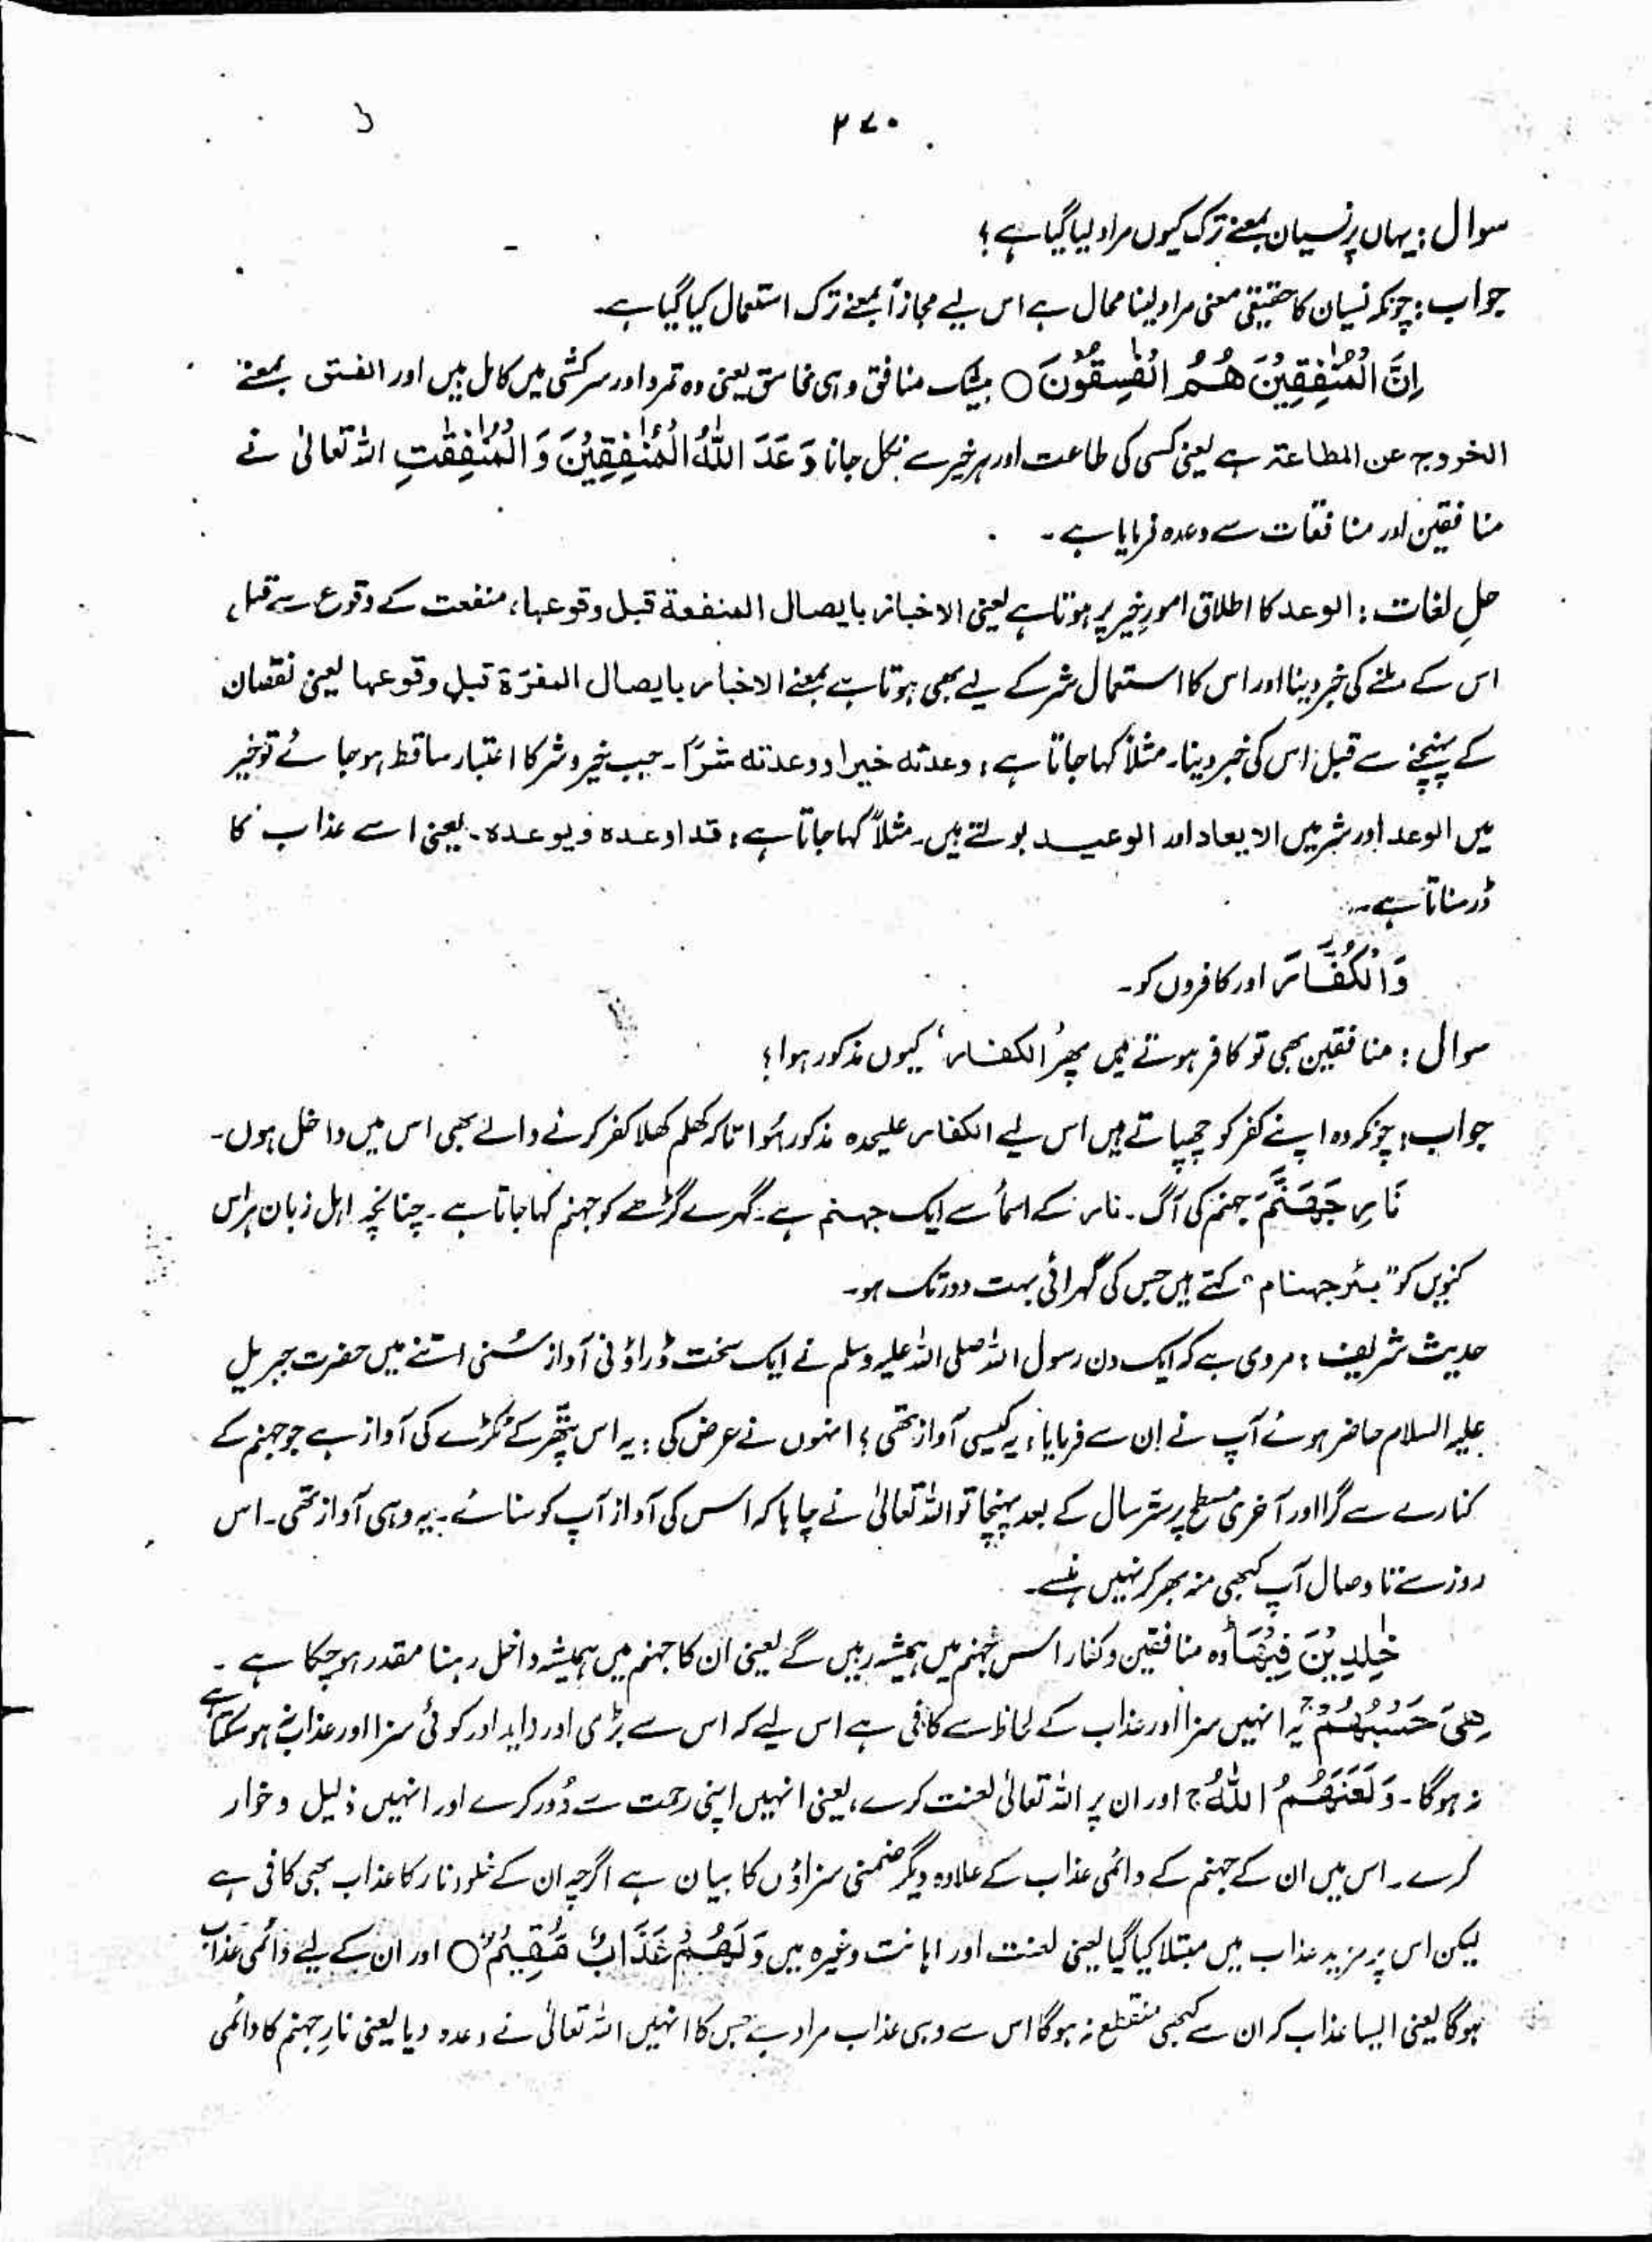 ۲۷۰
سوال : یہاں پر نسیان بمعنے ترک کیوں مراد لیا گیا ہے ؟
جواب : چونکہ نسیان کا حقیقی معنی مراد لینا محال ہے اس لیے مجازاً بمعنے ترک استعمال کیا گیا ہے۔
اِنَّ الْمُنٰفِقِیْنَ هُمُ الْفٰسِقُوْنَ ○ بیشک منافق وہی فاسق یعنی وہ تمرد اور سرکشی میں کامل ہیں اور الفسق بمعنے
الخروج عن الطاعۃ ہے یعنی کسی کی طاعت اور ہر خیر سے نکل جانا وَعَدَ اللّٰهُ الْمُنٰفِقِیْنَ وَ الْمُنٰفِقٰتِ اللہ تعالیٰ نے
منافقین اور منافقات سے وعدہ فرمایا ہے۔
حلِ لغات : الوعد کا اطلاق امورِ خیر پر ہوتا ہے یعنی الاخبار بایصال المنفعة قبل وقوعها، منفعت کے وقوع سے قبل
اس کے ملنے کی خبر دینا اور اس کا استعمال شر کے لیے بھی ہوتا ہے بمعنے الاخبار بایصال المضرّة قبل وقوعها یعنی نقصان
کے پہنچنے سے قبل اس کی خبر دینا۔ مثلاً کہا جاتا ہے : وعدته خیرا و وعدته شرًا۔ جیب خیر و شر کا اعتبار ساقط ہو جائے تو خیر
میں الوعد اور شر میں الایعاد اور الوعید بولتے ہیں۔ مثلاً کہا جاتا ہے : قد اوعده و یوعده۔ یعنی اسے عذاب کا
ڈر سناتا ہے۔
وَالْكُفَّارَ اور کافروں کو۔
سوال : منافقین بھی تو کافر ہوتے ہیں پھر 'الکفار' کیوں مذکور ہوا ؟
جواب : چونکہ وہ اپنے کفر کو چھپاتے ہیں اس لیے الکفار علیحدہ مذکور ہُوا تاکہ کھلم کھلا کفر کرنے والے بھی اس میں داخل ہوں۔
نَارِ جَهَنَّمَ جہنم کی آگ۔ نار کے اسمأ سے ایک جہنم ہے۔ گہرے گڑھے کو جہنم کہا جاتا ہے۔ چنانچہ اہلِ زبان ہر اس
کنویں کو "بئر جهنام" کہتے ہیں جس کی گہرائی بہت دور تک ہو۔
حدیث شریف : مروی ہے کہ ایک دن رسول اللہ صلی اللہ علیہ وسلم نے ایک سخت ڈراؤنی آواز سُنی اتنے میں حضرت جبریل
علیہ السلام حاضر ہوئے آپ نے ان سے فرمایا : یہ کیسی آواز تھی ؟ انہوں نے عرض کی : یہ اس پتھر کے ٹکڑے کی آواز ہے جو جہنم کے
کنارے سے گرا اور آخری سطح پر ستر سال کے بعد پہنچا تو اللہ تعالیٰ نے چاہا کہ اس کی آواز آپ کو سنائے۔ یہ وہی آواز تھی۔ اس
روز سے تا وصال آپ کبھی منہ بھر کر نہیں ہنسے۔
خٰلِدِیْنَ فِیْهَا وہ منافقین و کفار اس جہنم میں ہمیشہ رہیں گے یعنی ان کا جہنم میں ہمیشہ داخل رہنا مقدر ہو چکا ہے۔
هِیَ حَسْبُهُمْ ج یہ انہیں سزا اور عذاب کے لحاظ سے کافی ہے اس لیے کہ اس سے بڑی اور دایہ اور کوئی سزا اور عذاب نہ ہو سکتا ہے
نہ ہوگا۔ وَلَعَنَهُمُ اللّٰهُ ج اور ان پر اللہ تعالیٰ لعنت کرے، یعنی انہیں اپنی رحمت سے دُور کرے اور انہیں ذلیل و خوار
کرے۔ اس میں ان کے جہنم کے دائمی عذاب کے علاوہ دیگر ضمنی سزاؤں کا بیان ہے اگرچہ ان کے خلودِ نار کا عذاب بھی کافی ہے
لیکن اس پر مزید عذاب میں مبتلا کیا گیا یعنی لعنت اور اہانت وغیرہ میں وَلَهُمْ عَذَابٌ مُّقِیْمٌ ○ اور ان کے لیے دائمی عذاب
ہوگا یعنی ایسا عذاب کہ ان سے کبھی منقطع نہ ہوگا اس سے وہی عذاب مراد ہے جس کا انہیں اللہ تعالیٰ نے وعدہ دیا یعنی نارِ جہنم کا دائمی